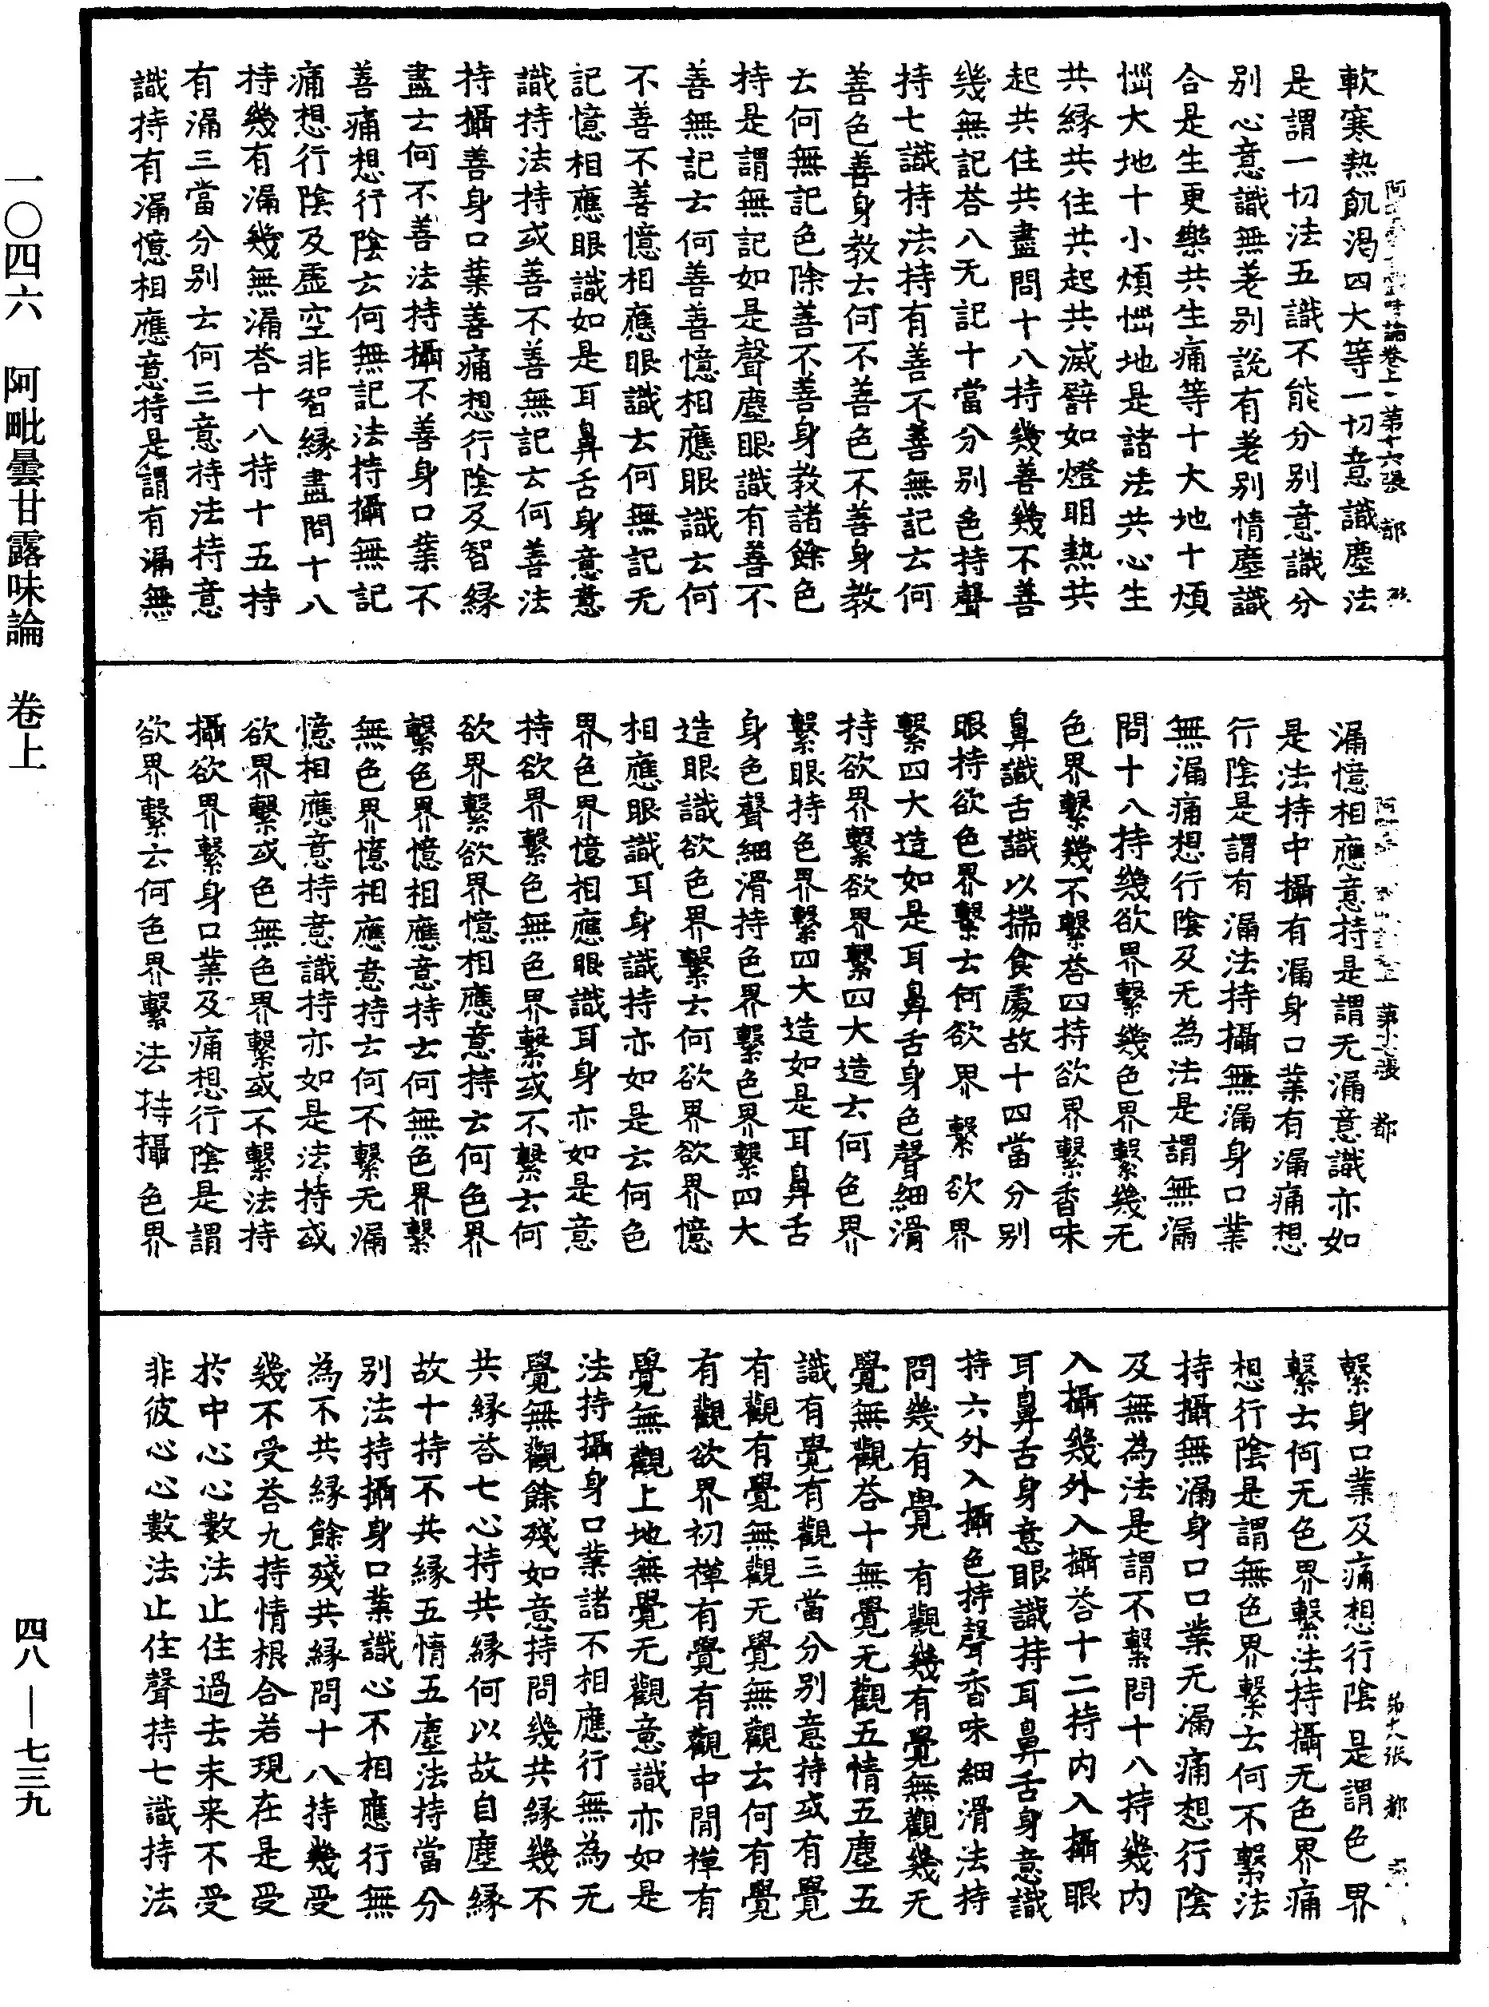 軟寒熱飢渴四大等一切意識塵法
是謂一切法五識不能分別意識分
別心意識無差別說有差別情塵識
合是生更樂共生痛等十大地十煩
惱大地十小煩惱地是諸法共心生
共緣共住共起共滅譬如燈明熱共
起共住共盡問十八持幾善幾不善
幾無記荅八无記十當分別色持聲
持七識持法持有善不善無記云何
善色善身教云何不善色不善身教
云何無記色除善不善身教諸餘色
持是謂無記如是聲塵眼識有善不
善無記云何善善憶相應眼識云何
不善不善憶相應眼識云何無記无
記憶相應眼識如是耳鼻舌身意意
識持法持或善不善無記云何善法
持攝善身口業善痛想行陰及智緣
盡云何不善法持攝不善身口業不
善痛想行陰云何無記法持攝無記
痛想行陰及虛空非智緣盡問十八
持幾有漏幾無漏荅十八持十五持
有漏三當分別云何三意持法持意
識持有漏憶相應意持是謂有漏無
漏憶相應意持是謂无漏意識亦如
是法持中攝有漏身口業有漏痛想
行陰是謂有漏法持攝無漏身口業
無漏痛想行陰及无為法是謂無漏
問十八持幾欲界繫幾色界繫幾无
色界繫幾不繫荅四持欲界繫香味
鼻識舌識以揣食處故十四當分別
眼持欲色界繫云何欲界繫欲界
繫四大造如是耳鼻舌身色聲細滑
持欲界繫欲界繫四大造云何色界
繫眼持色界繫四大造如是耳鼻舌
身色聲細滑持色界繫色界繫四大
造眼識欲色界繫云何欲界欲界憶
相應眼識耳身識持亦如是云何色
界色界憶相應眼識耳身亦如是意
持欲界繫色無色界繫或不繫云何
欲界繫欲界憶相應意持云何色界
繫色界憶相應意持云何無色界繫
無色界憶相應意持云何不繫无漏
憶相應意持意識持亦如是法持或
欲界繫或色無色界繫或不繫法持
攝欲界繫身口業及痛想行陰是謂
欲界繫云何色界繫法持攝色界
繫身口業及痛想行陰是謂色界
繫云何无色界繫法持攝无色界痛
想行陰是謂無色界繫云何不繫法
持攝無漏身口口業无漏痛想行陰
及無為法是謂不繫問十八持幾內
入攝幾外入攝荅十二持內入攝眼
耳鼻舌身意眼識持耳鼻舌身意識
持六外入攝色持聲香味細滑法持
問幾有覺有觀幾有覺無觀幾无
覺無觀荅十無覺无觀五情五塵五
識有覺有觀三當分別意持或有覺
有觀有覺無觀无覺無觀云何有覺
有觀欲界初禪有覺有觀中間禪有
覺無觀上地無覺无觀意識亦如是
法持攝身口業諸不相應行無為无
覺無觀餘殘如意持問幾共緣幾不
共緣荅七心持共緣何以故自塵緣
故十持不共緣五情五塵法持當分
別法持攝身口業識心不相應行無
為不共緣餘殘共緣問十八持幾受
幾不受荅九持情根合若現在是受
於中心心數法止住過去未來不受
非彼心心數法止住聲持七識持法
一〇四六 阿毗曇甘露味論 卷上
四八—七三九